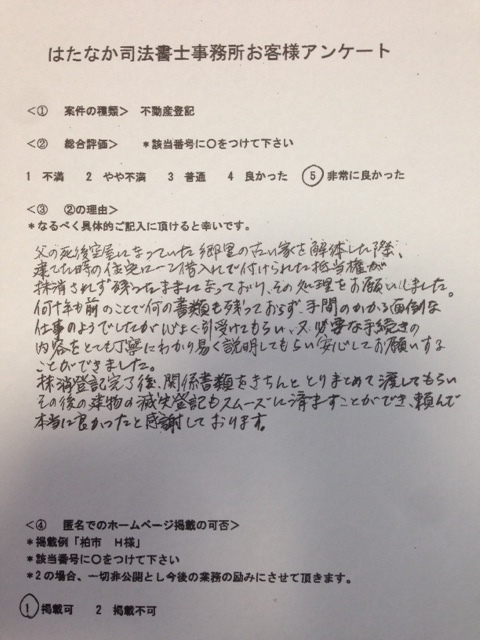 はたなか司法書士事務所お客様アンケート
<① 案件の種類> 不動産登記
<② 総合評価> *該当番号に〇をつけて下さい
1 不満 2 やや不満 3 普通 4 良かった 5 非常に良かった
<③ ②の理由>
*なるべく具体的ご記入に頂けると幸いです。
父の死後空屋になっていた郷里の古い家を解体した際、
建てた時の住宅ローン借入れで付けられた抵当権が
抹消されず残ったままになっており、その処理をお願いしました。
何十年も前のことで何の書類も残っておらず、手間のかかる面倒な
仕事のようでしたが心よく引受けてもらい、又、必要な手続きの
内容をとても丁寧にわかり易く説明してもらい安心してお願いする
ことができました。
抹消登記完了後、関係書類をきちんととりまとめて渡してもらい
その後の建物の滅失登記もスムーズに済ますことができ、頼んで
本当に良かったと感謝しております。
<④ 匿名でのホームページ掲載の可否>
*掲載例「柏市 H様」
*該当番号に〇をつけて下さい
*2の場合、一切非公開とし今後の業務の励みにさせて頂きます。
1 掲載可 2 掲載不可